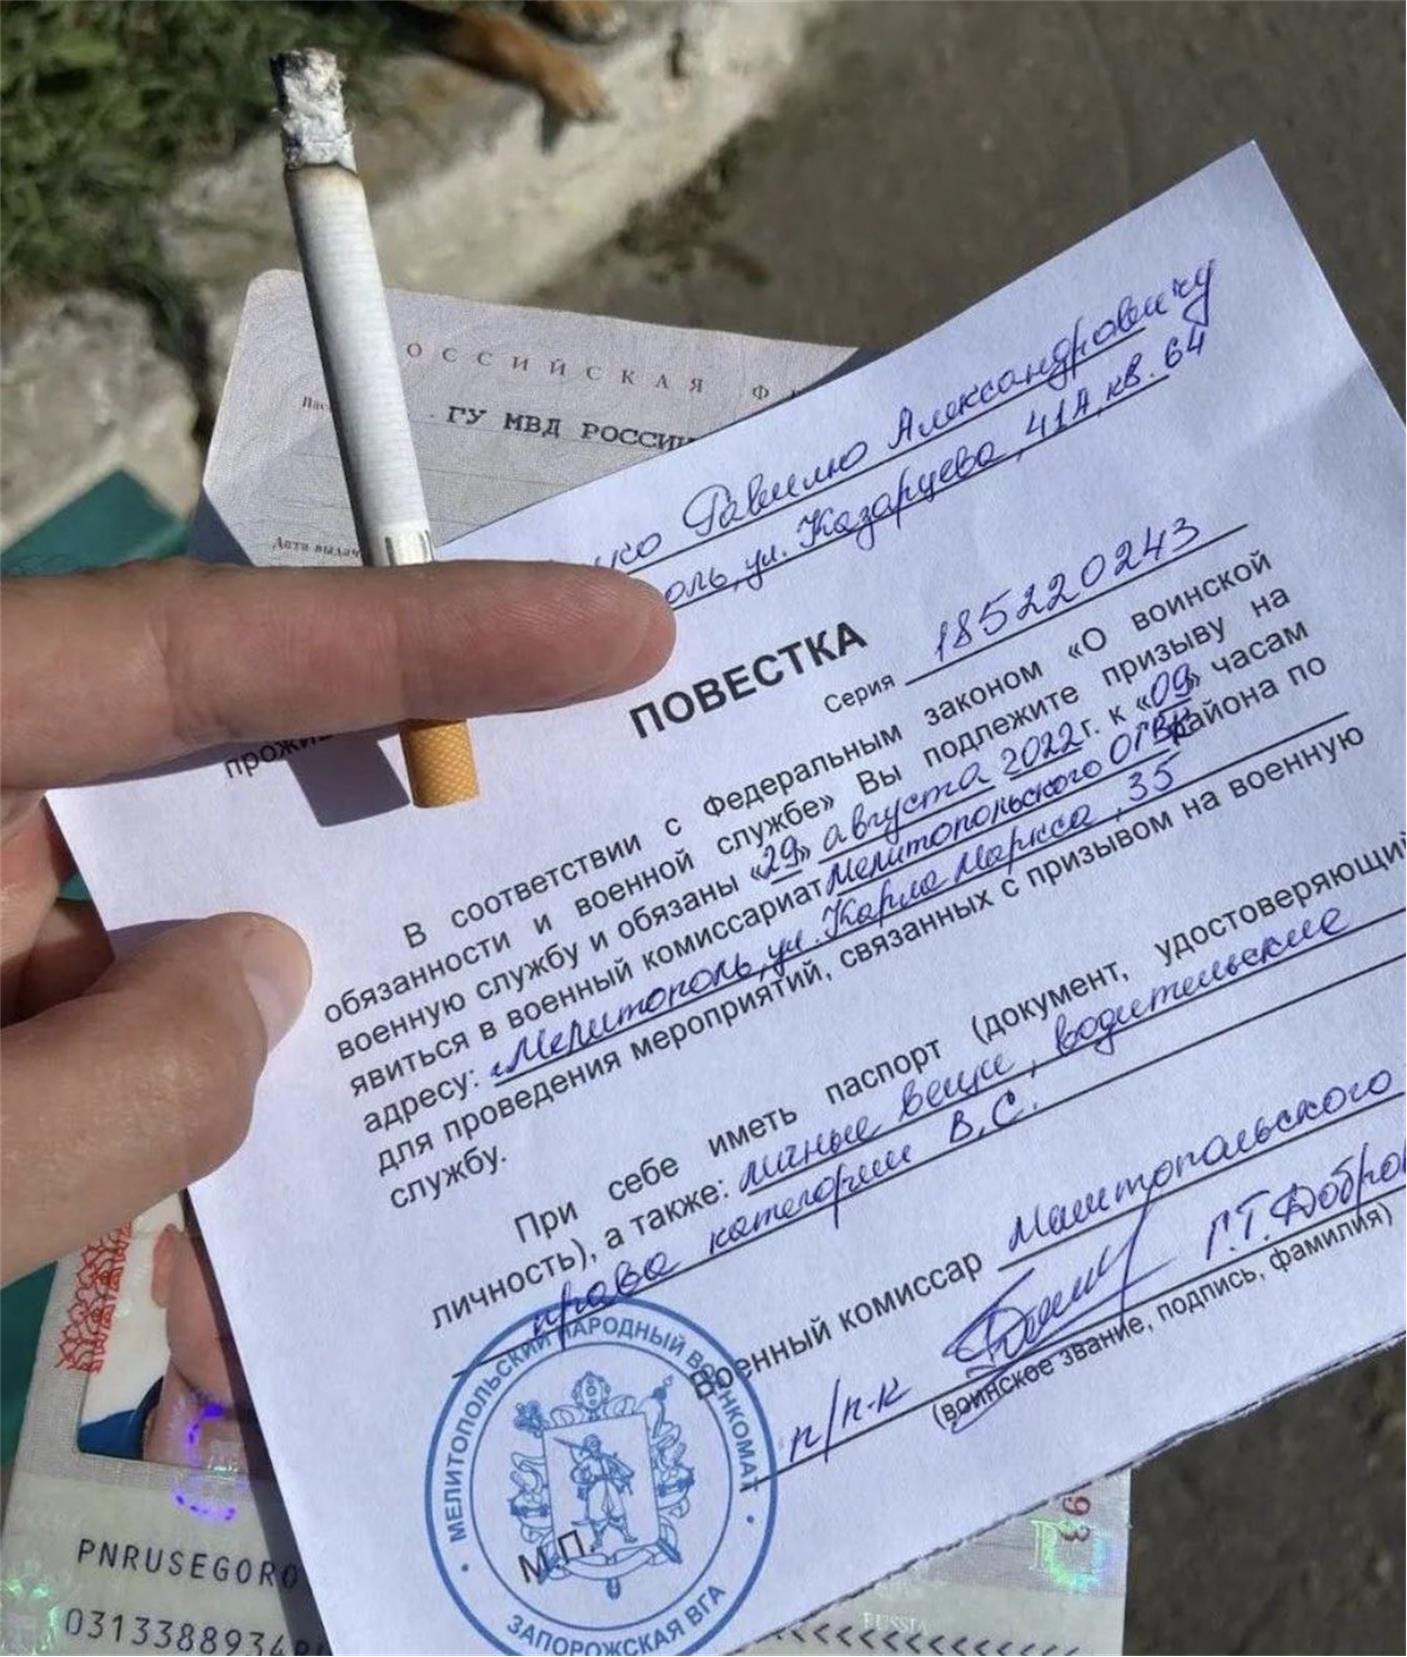 ОССИЙСКАЯ Ф
ГУ МВД РОССИИ
Дата выдач
Равилю Александровичу
ул. Казарцева, 41А, кв. 64
ПОВЕСТКА
Серия 185220243
В соответствии с Федеральным законом «О воинской
обязанности и военной службе» Вы подлежите призыву на
военную службу и обязаны «29» августа 2022 г. к «09» часам
явиться в военный комиссариат Мелитопольского ОГВК района по
адресу: г. Мелитополь, ул. Карла Маркса, 35
для проведения мероприятий, связанных с призывом на военную
службу.
При себе иметь паспорт (документ, удостоверяющий
личность), а также: личные вещи, водительские
права категории В, С.
Военный комиссар Мелитопольского
п/п-к Г.Т. Добро
(воинское звание, подпись, фамилия)
М.П.
МЕЛИТОПОЛЬСКИЙ НАРОДНЫЙ ВОЕНКОМАТ
ЗАПОРОЖСКАЯ ВГА
PNRUSEGORO
0313388934
RUSSIA
<<<<<<<<<<<<<